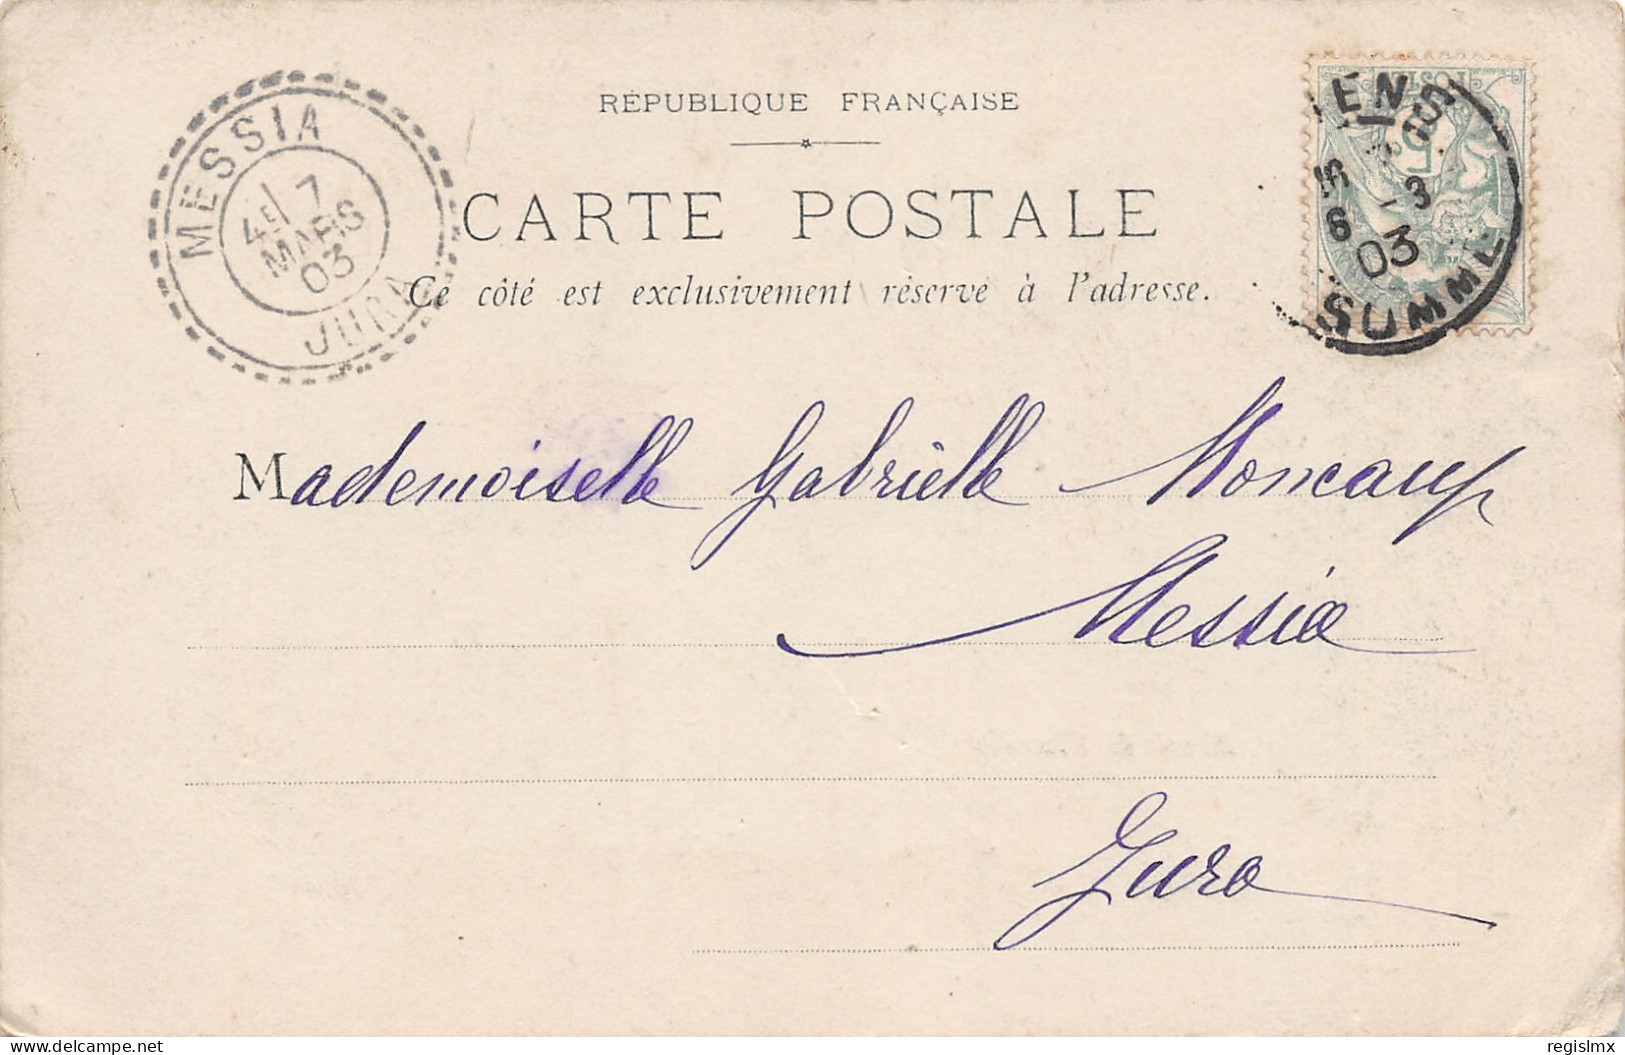 RÉPUBLIQUE FRANÇAISE
CARTE POSTALE
Ce côté est exclusivement réservé à l'adresse.
MESSIA
7
MARS
03
JURA
POSTES
5
ENS
6 -3
03
SOMME
Mademoiselle Gabrielle Moncaup
Messia
Jura
delcampe.net
regislmx